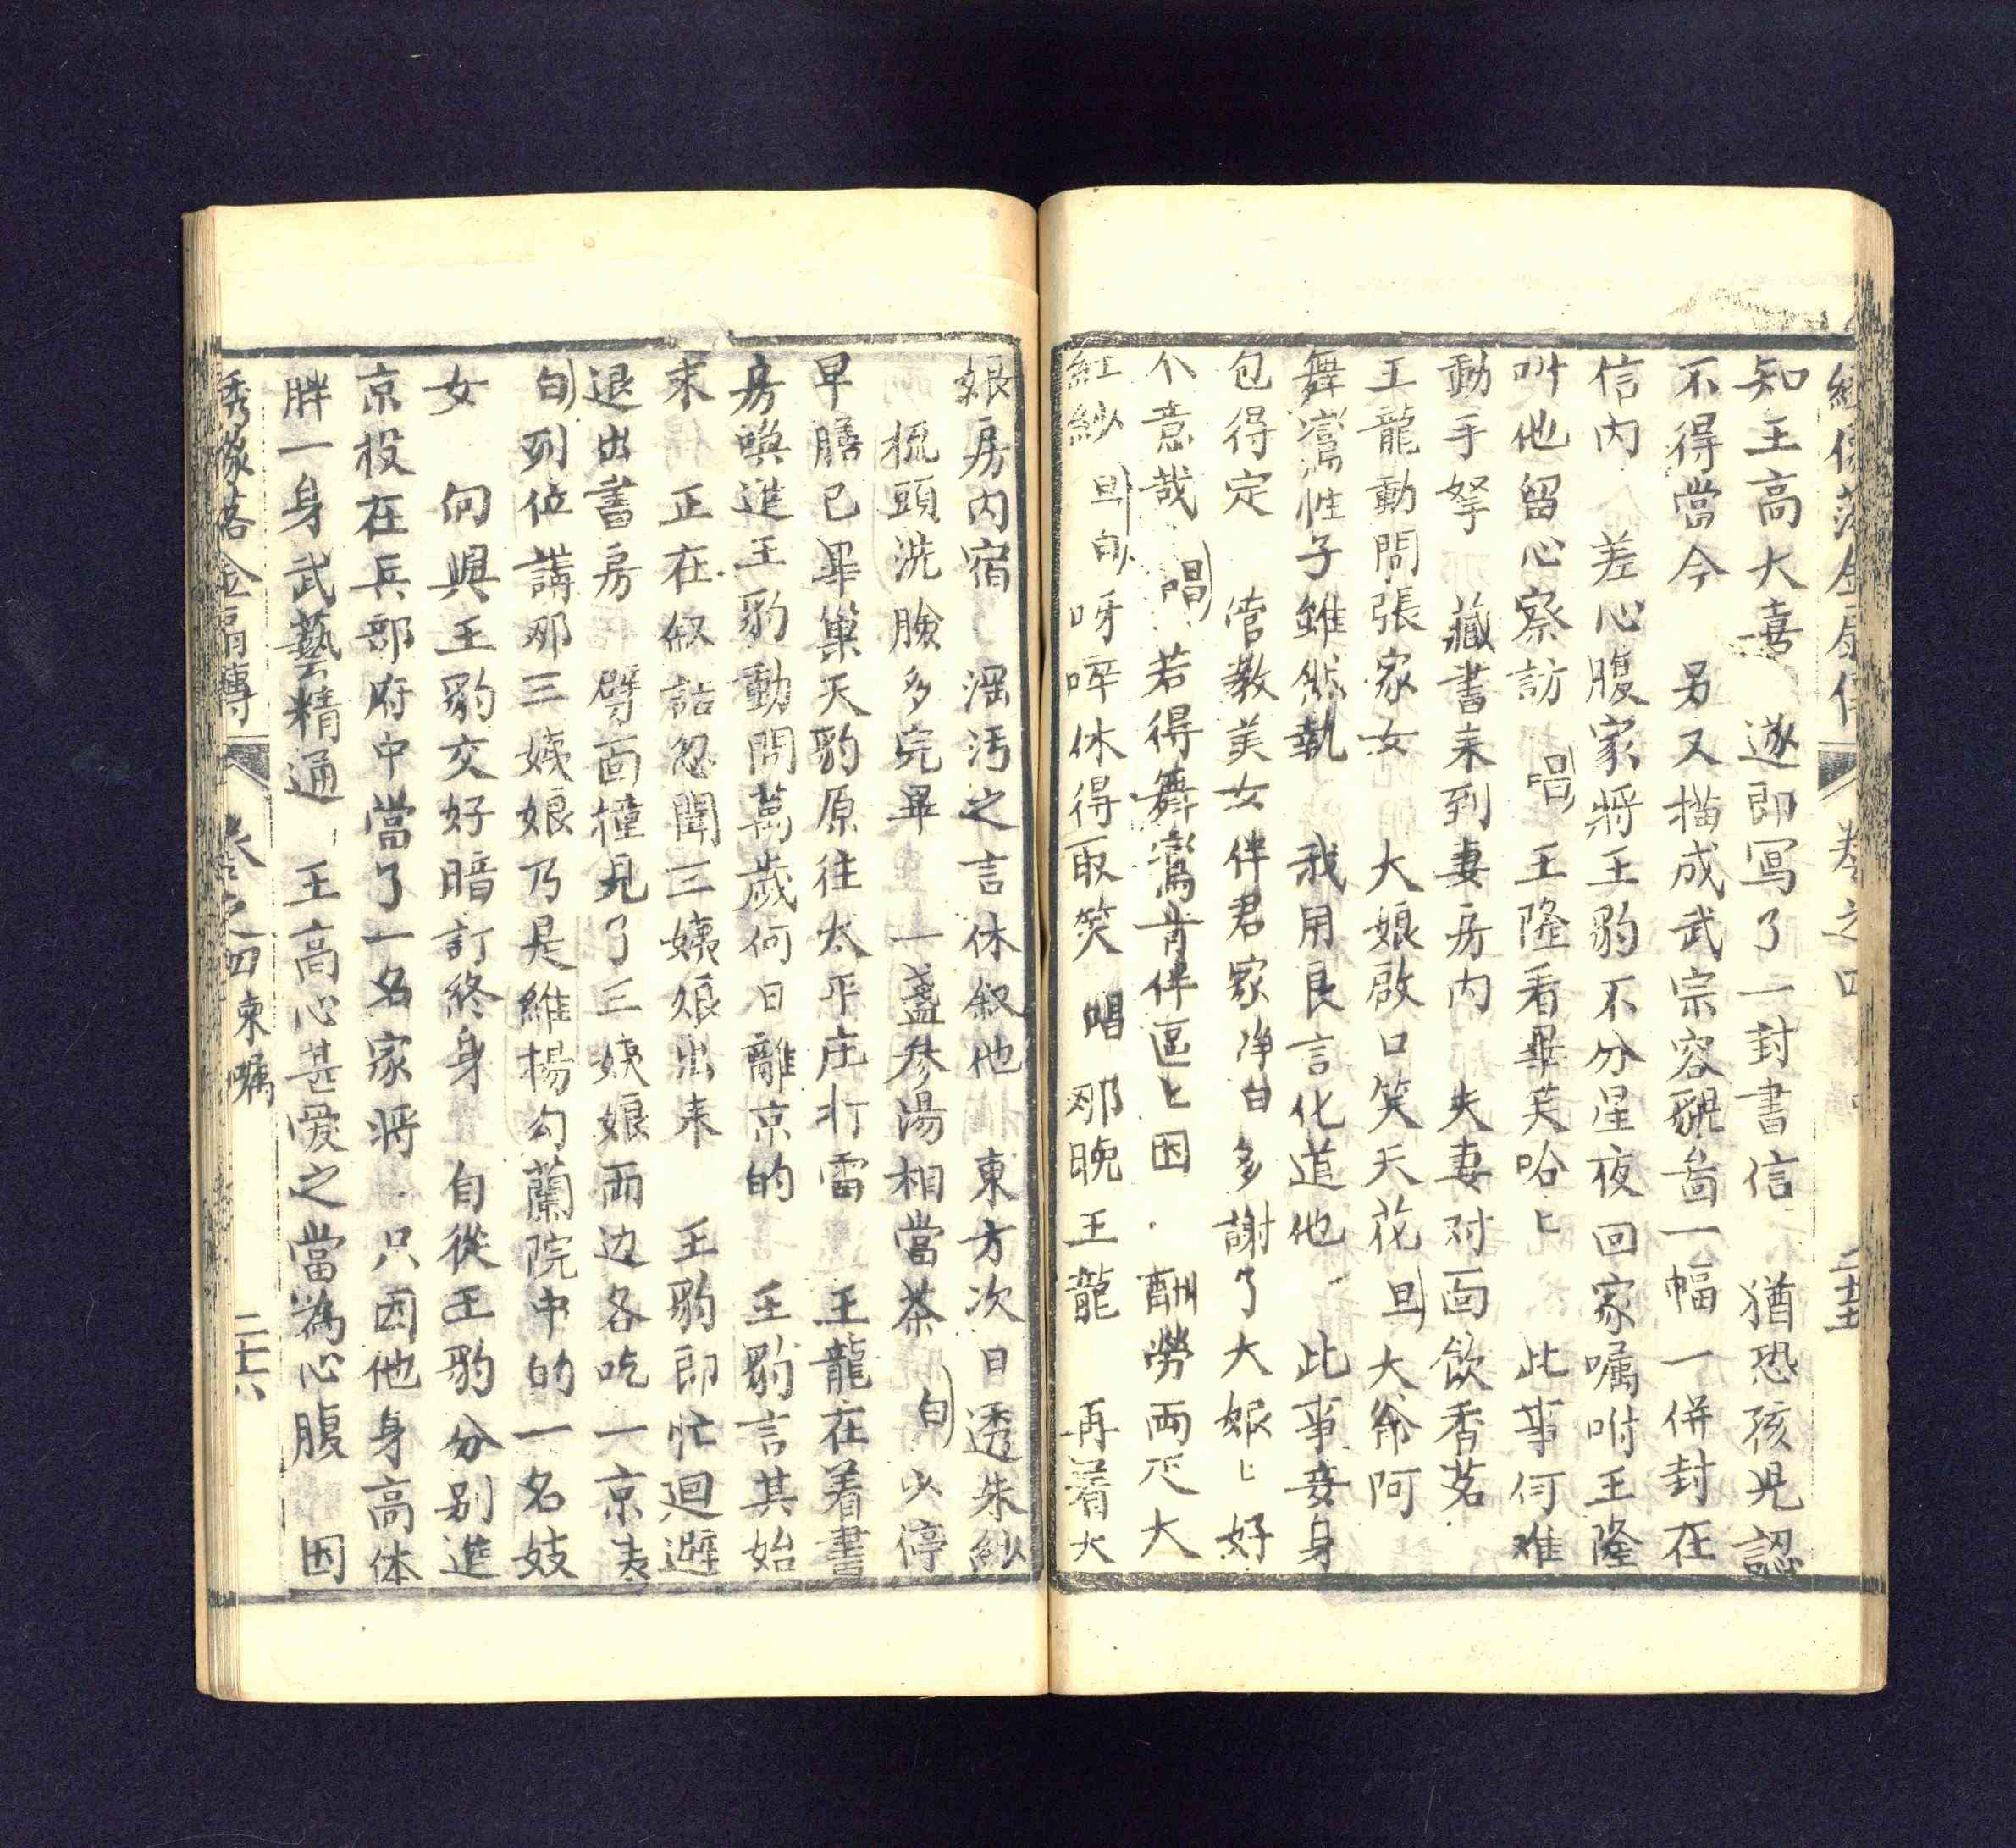 繡像落金扇傳 卷之四 二十五
知王高大喜 遂即冩了一封書信 猶恐孩児認
不得當今 另又描成武宗容貌啚一幅 一併封在
信内 差心腹家將王豹不分星夜回家嘱咐王隆
叫他留心察訪 唱 王隆看畢英哈匕 此事何难
動手拏 藏書来到妻房内 夫妻对面飲香茗
王龍動問張家女 大娘啟口笑天花 旦 大爷阿
舞鸞性子雖然執 我用良言化道他 此事妾身
包得定 管教美女伴君家 净白 多謝了大娘匕好
个意哉 唱 若得舞鸞肯伴區匕因 酬勞両疋大
紅紗 旦白 呀啐休得取笑 唱 那晚王龍 再着大
娘房内宿 滛汚之言休叙他 東方次日透朱紗
梳頭洗臉多完畢 一盞參湯相當茶 白 少停
早膳已畢巢天豹原往太平庄打雷 王龍在着書
房喚進王豹動問萬歲何日離京的 王豹言其始
末 正在叙話忽聞三姨娘出来 王豹即忙迴避
退出書房 劈面撞見了三姨娘両边各吃一京表
白 列位講那三姨娘乃是維楊勾蘭院中的一名妓
女 向與王豹交好暗訂終身 自從王豹分别進
京投在兵部府中當了一名家將 只因他身高体
胖一身武藝精通 王高心甚爱之當為心腹 因
秀像落金扇傳 卷之四 柬嘱 二十六